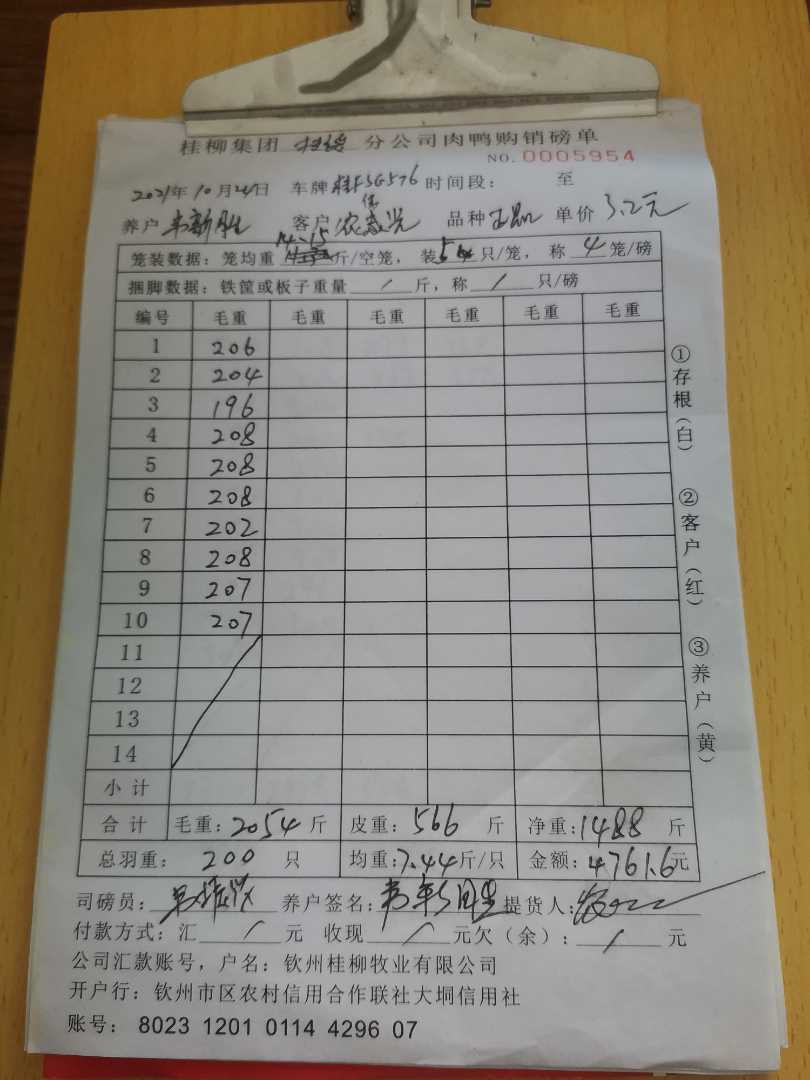 桂柳集团 分公司肉鸭购销磅单
NO. 0005954
2021年10月24日 车牌桂F3G576 时间段： 至
养户韦新胜 客户农志光 品种 单价3.2元
笼装数据：笼均重14.15斤/空笼，装5只/笼，称4笼/磅
捆脚数据：铁筐或板子重量/斤，称/只/磅
编号 毛重 毛重 毛重 毛重 毛重 毛重
1 206
2 204
3 196
4 208
5 208
6 208
7 202
8 208
9 207
10 207
11
12
13
14
小计
合计 毛重：2054斤 皮重：566斤 净重：1488斤
总羽重：200只 均重：7.44斤/只 金额：4761.6元
司磅员： 养户签名：韦新胜 提货人：
付款方式：汇/元 收现/元欠（余）：/元
公司汇款账号，户名：钦州桂柳牧业有限公司
开户行：钦州市区农村信用合作联社大垌信用社
账号：8023 1201 0114 4296 07
①存根（白）
②客户（红）
③养户（黄）